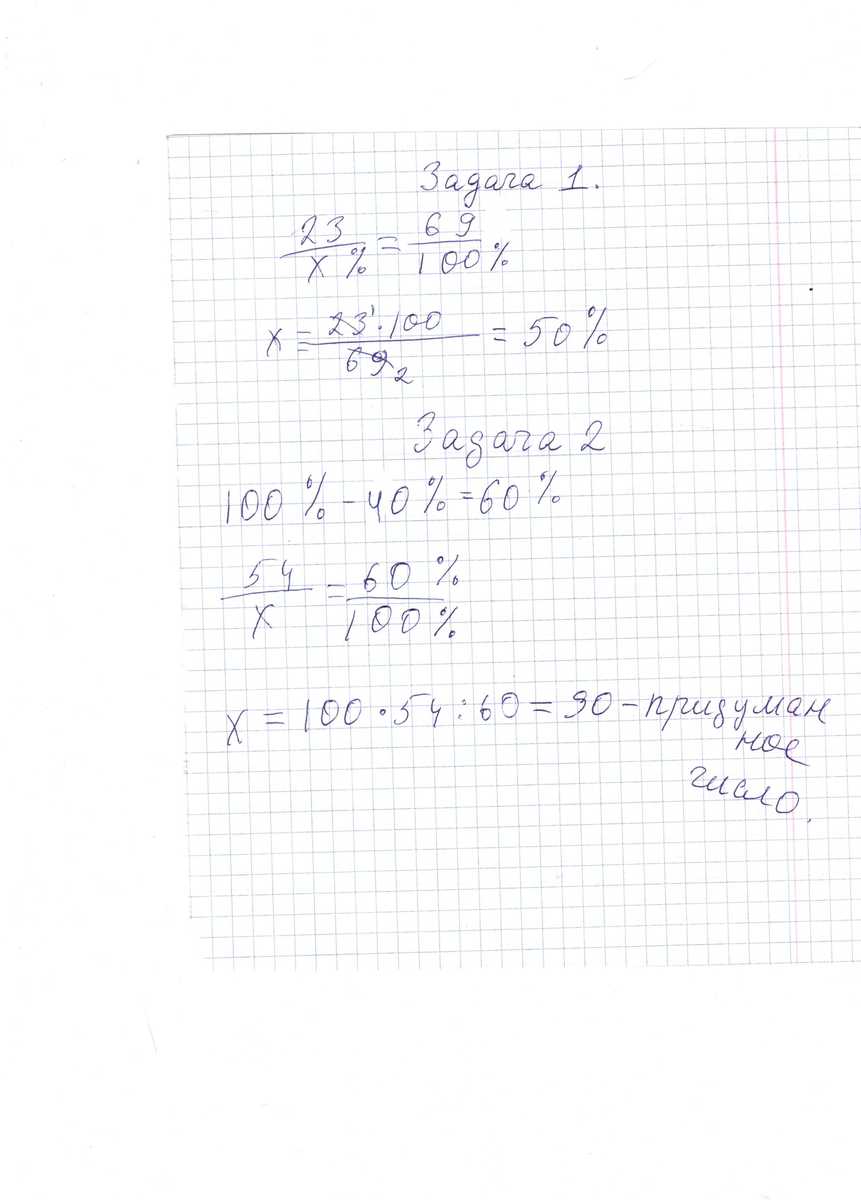 Задача 1.
23 / x % = 69 / 100 %
x = 23¹ · 100 / 69₂ = 50 %
Задача 2
100 % - 40 % = 60 %
54 / x = 60 % / 100 %
x = 100 · 54 : 60 = 90 - придуман
ное
число.